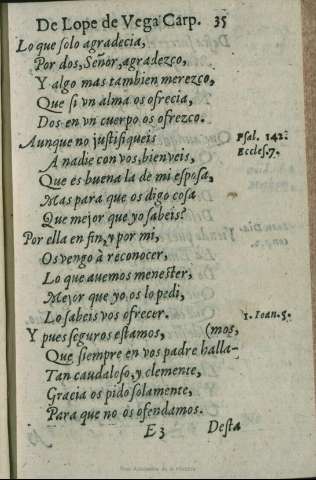 De Lope de Vega Carp. 35
Lo que solo agradecia,
Por dos, Señor, agradezco,
Y algo mas tambien merezco,
Que si vn alma os ofrecia,
Dos en vn cuerpo os ofrezco.
Aunque no justifiqueis
Psal. 142.
A nadie con vos, bien veis,
Eccles. 7.
Que es buena la de mi esposa,
Mas para que os digo cosa
Que mejor que yo sabeis?
Por ella en fin, y por mi,
Os vengo à reconocer,
Lo que auemos menester,
Mejor que yo os lo pedi,
Lo sabeis vos ofrecer.
1. Ioan. 5.
Y pues seguros estamos, (mos,
Que siempre en vos padre halla-
Tan caudaloso, y clemente,
Gracia os pido solamente,
Para que no os ofendamos.
E3 Desta